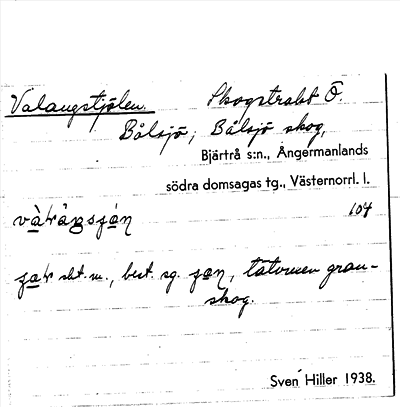 Valangstjälen. Skogstrakt Ö.
Bålsjö, Bålsjö skog,
Bjärtrå s:n., Ångermanlands
södra domsagas tg., Västernorrl. l.
104
sbt. m., best. sg. tätvuxen gran-
skog.
Sven Hiller 1938.